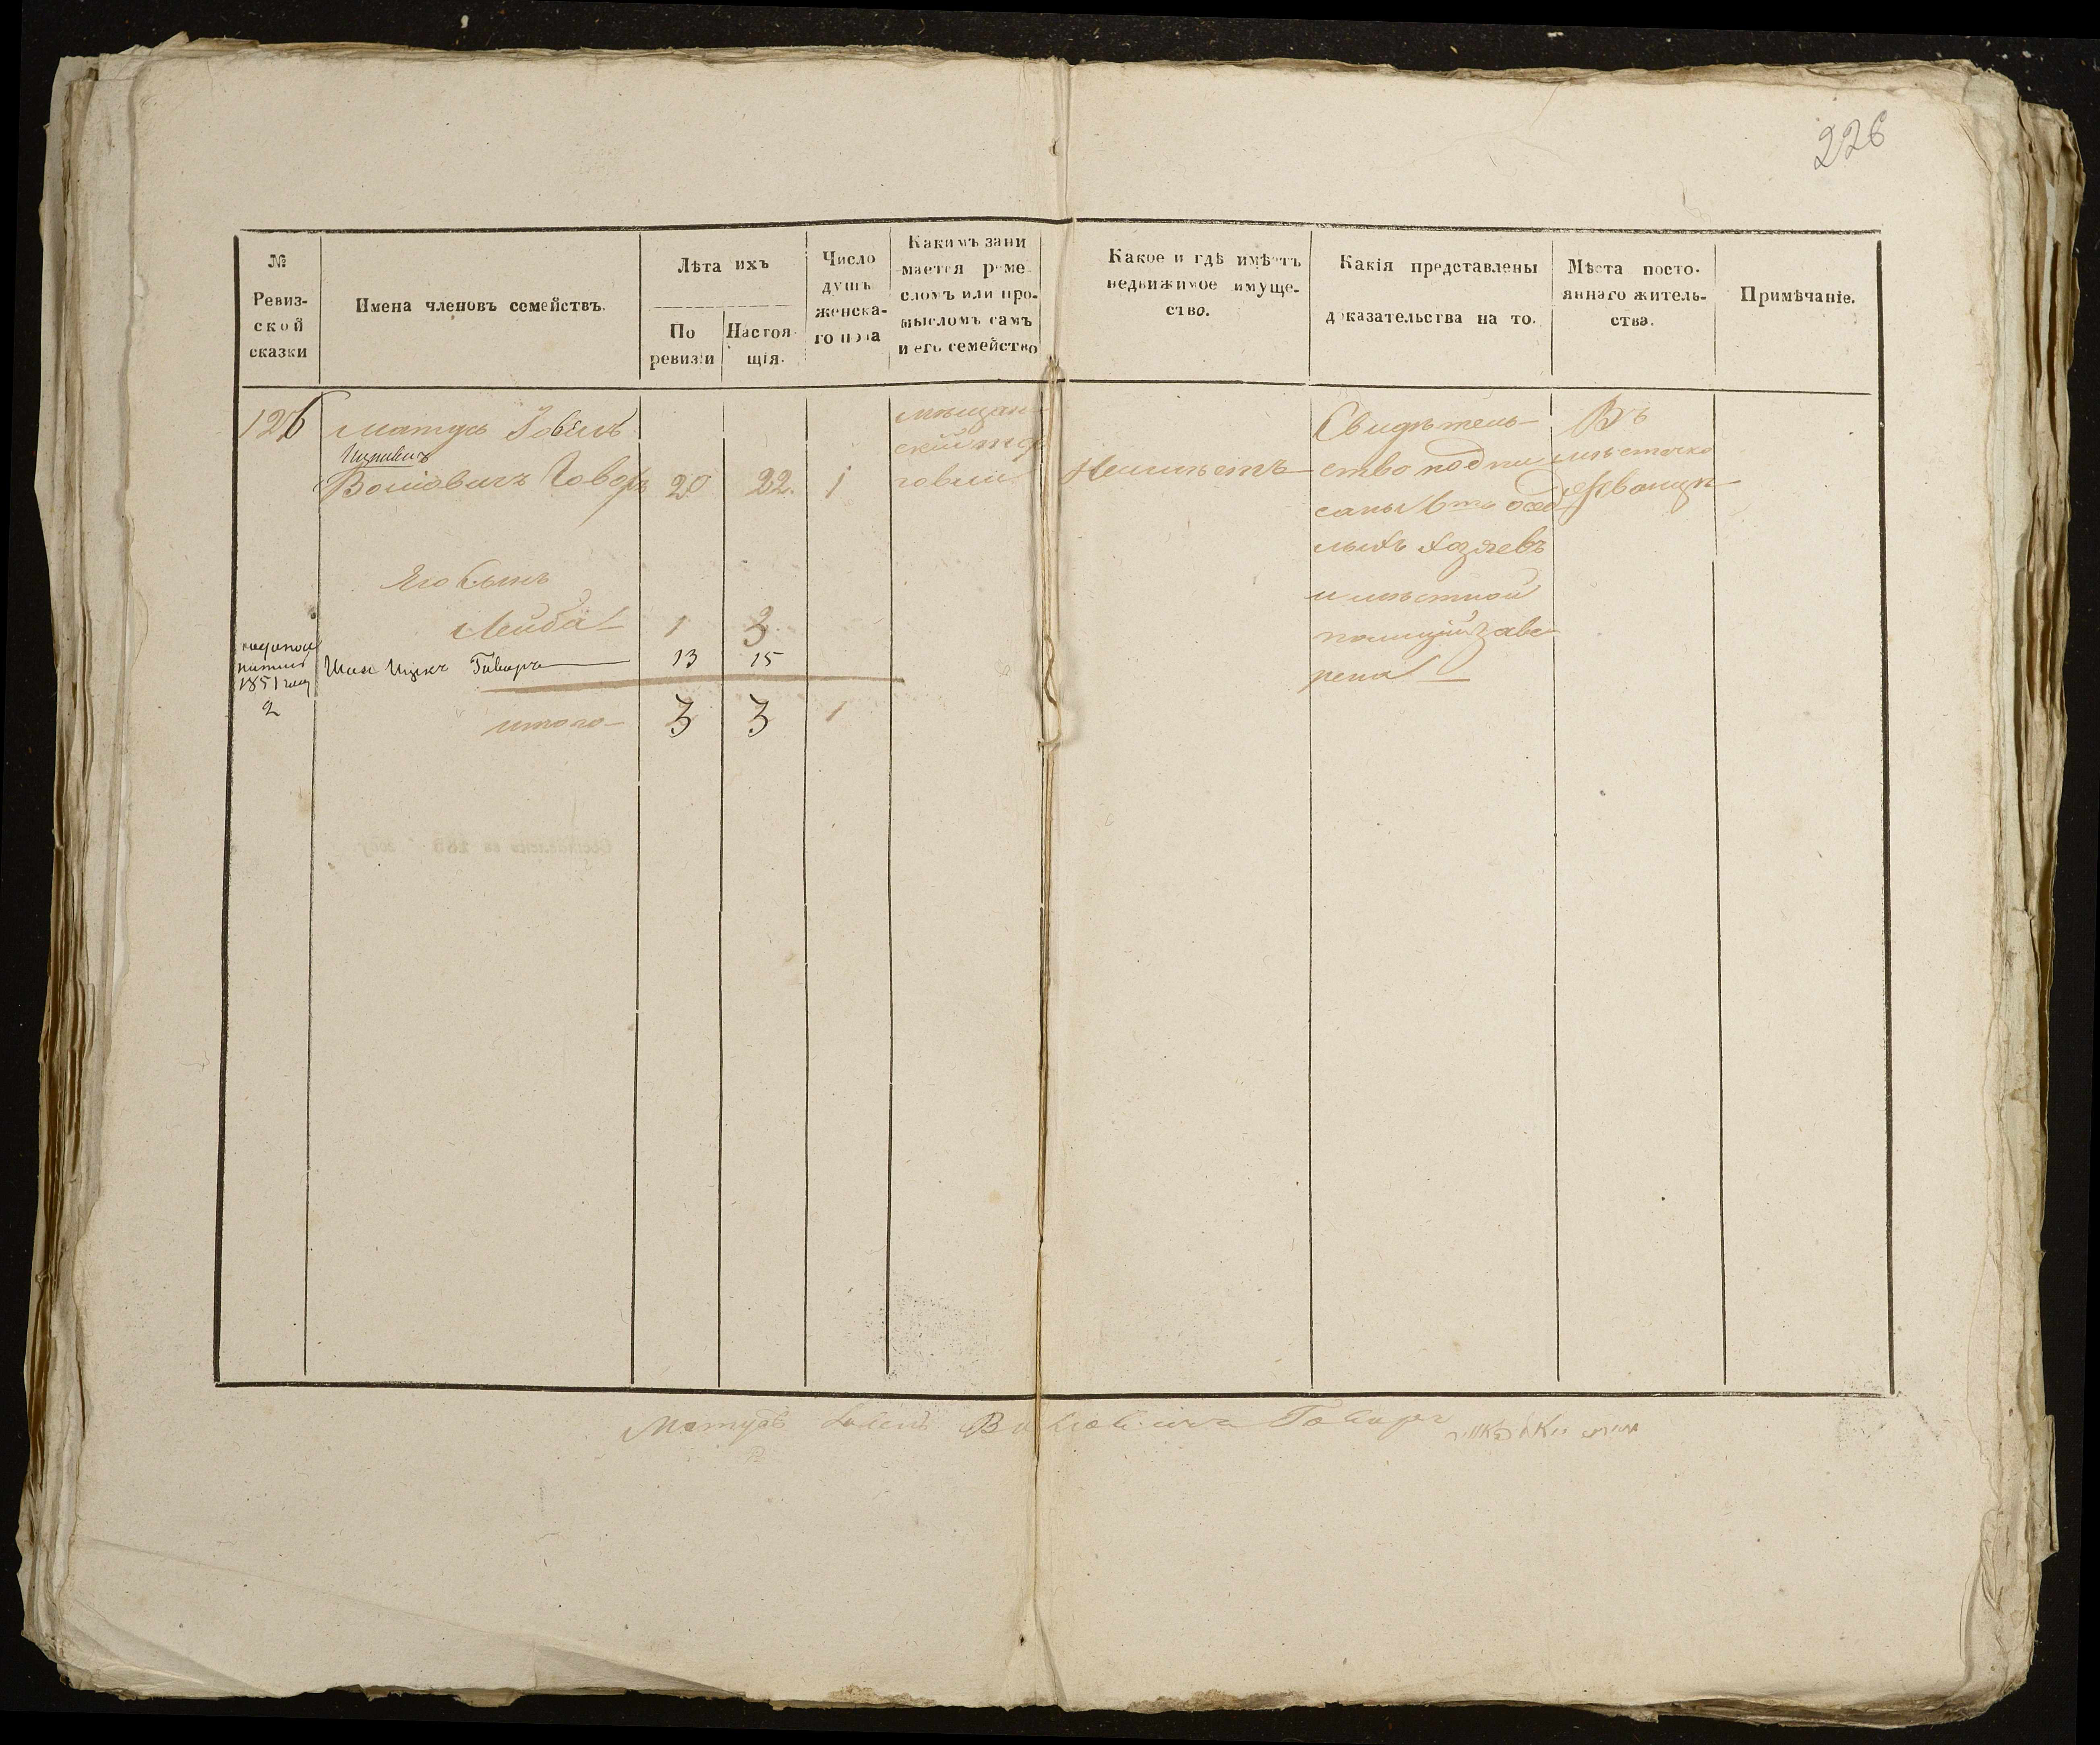 226
№
Ревиз-
ской
сказки
Имена членовъ семействъ.
Лѣта ихъ
По
ревизіи
Настоя-
щія.
Число
душъ
женска-
го пола
Какимъ зани
мается реме-
сломъ или про-
мысломъ самъ
и его семейство
Какое и гдѣ имѣетъ
недвижимое имуще-
ство.
Какія представлены
доказательства на то.
Мѣста посто-
яннаго житель-
ства.
Примѣчаніе.
126
Матусъ
Говоръ
20
22.
1
мѣщан-
ской тор
говли
Неимѣетъ
Свидѣтель-
ство подпи
саны 6ть осѣд
лыхъ хозяевъ
и мѣстной
полиціи завѣ
рена
Въ
мѣстечкѣ
Его Сынъ
Лейба
1
3
1851 году
2
Ицкъ Говоръ
13
15
итого
3
3
1
Матусъ Говоръ